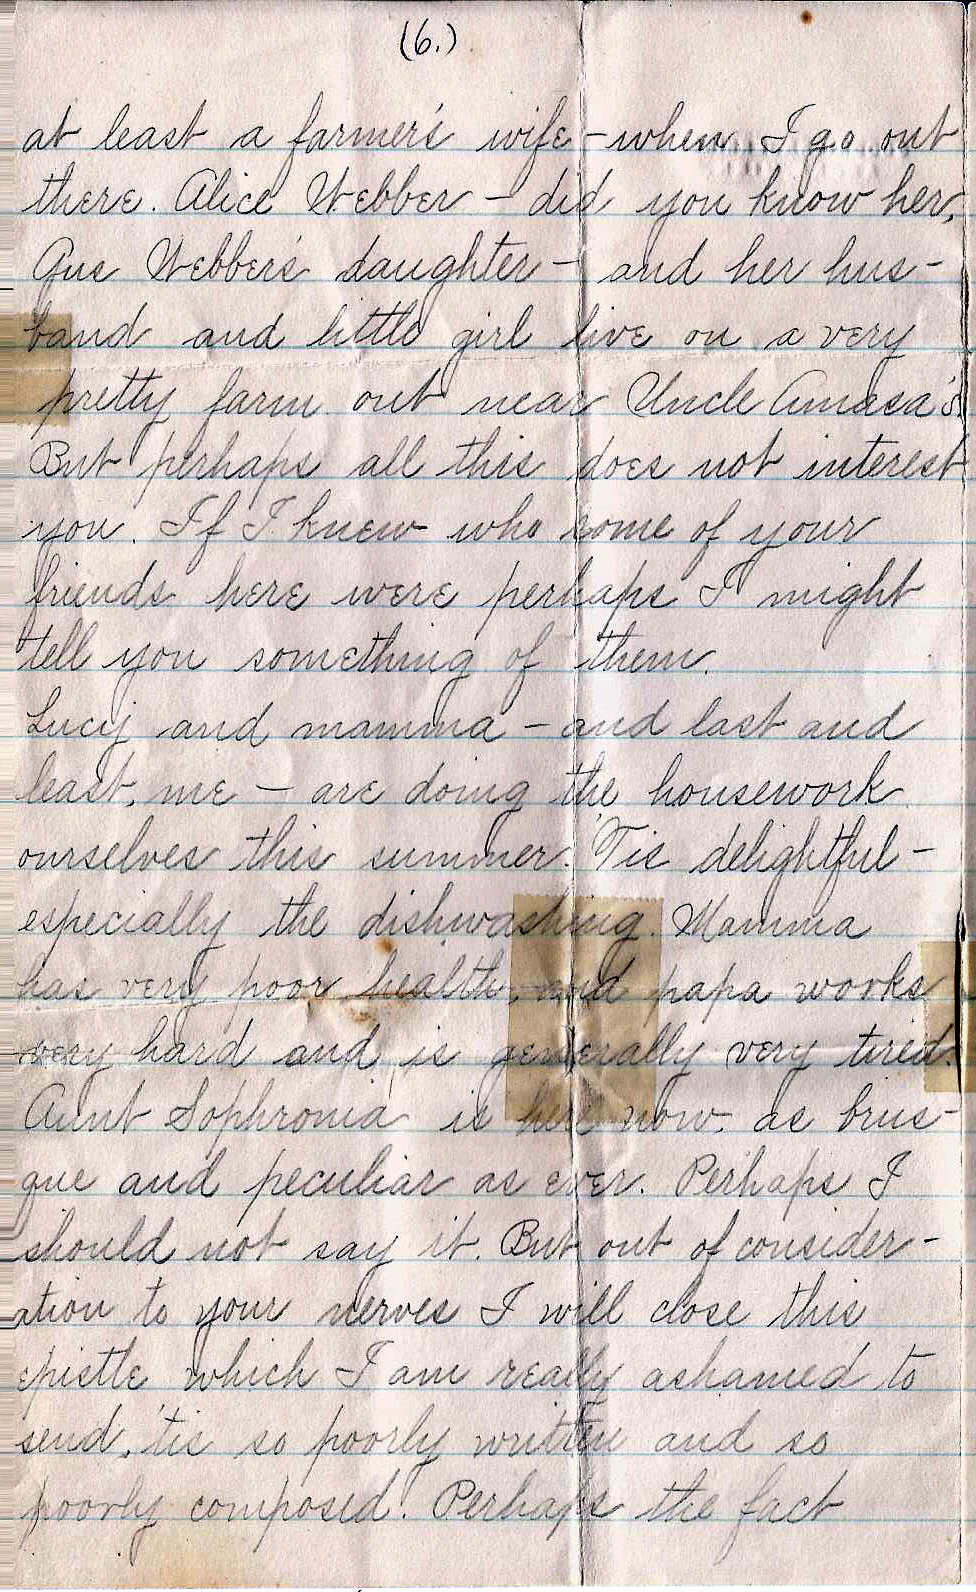 (6.)
at least a farmer's wife - when I go out
there. Alice Webber - did you know her,
Gus Webber's daughter - and her hus-
band and little girl live on a very
pretty farm out near Uncle Amasa's.
But perhaps all this does not interest
you. If I knew who some of your
friends here were perhaps I might
tell you something of them.
Lucy and mamma - and last and
least, me - are doing the housework
ourselves this summer. 'Tis delightful -
especially the dishwashing. Mamma
has very poor health, and papa works
very hard and is generally very tired.
Aunt Sophronia is here now, as brus-
que and peculiar as ever. Perhaps I
should not say it. But out of consider-
ation to your nerves I will close this
epistle which I am really ashamed to
send, 'tis so poorly written and so
poorly composed. Perhaps the fact